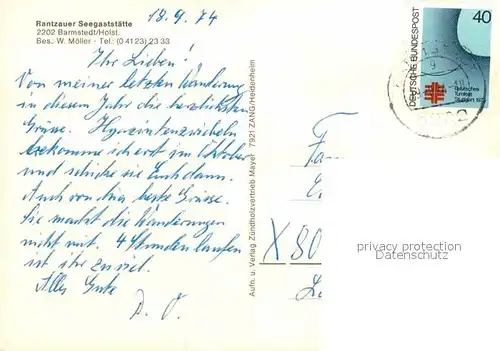 Rantzauer Seegaststätte
2202 Barmstedt/Holst.
Bes.: W. Möller · Tel.: (0 41 23) 23 33
18.9.74
Ihr Lieben!
Von meiner letzten Wanderung
in diesem Jahre die herzlichsten
Grüsse. Hyazintenzwiebeln
bekomme ich erst im Oktober
und schicke sie Euch dann.
Auch von Lina beste Grüsse.
Sie macht die Wanderungen
nicht mit. 4 Stunden laufen
ist ihr zuviel.
Alles Gute
Aufn. u. Verlag Zündholzvertrieb Mayer 7921 ZANG/Heidenheim
DEUTSCHE BUNDESPOST
40
Deutsches
Turnfest
Stuttgart 1973
Fa
X 80
privacy protection
Datenschutz